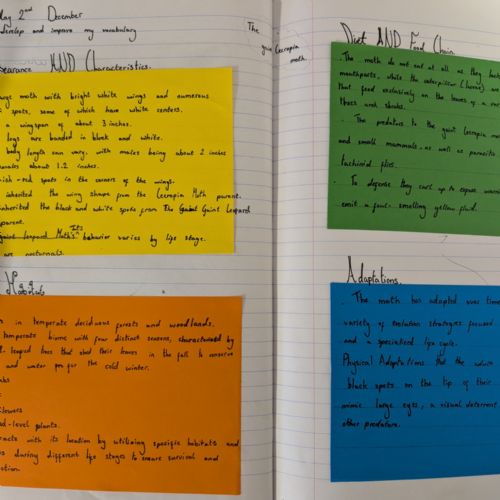 day 2nd December
develop and improve my vocabulary
The
giant Cecropia
moth.
pearance AND Characteristics.
large moth with bright white wings and numerous
spots, some of which have white centers.
a wingspan of about 3 inches.
legs are banded in black and white.
body length can vary, with males being about 2 inches
males about 1.2 inches.
ish-red spots in the corners of the wings.
inherited the wing shape from the Cecropia Moth parent.
inherited the black and white spots from The Giant Leopard
parent.
giant leopard Moth's Its behavior varies by life stage.
are nocturnals.
Habitats
in temperate deciduous forests and woodlands.
temperate biome with four distinct seasons, characterized by
leaved trees that shed their leaves in the fall to conserve
and water for the cold winter.
flowers
level plants.
racts with its location by utilizing specific habitats and
during different life stages to ensure survival and
Diet AND Food Chain.
. The moths do not eat at all as they lack
mouthparts, while the caterpillars (larvae) are
that feed exclusively on the leaves of a
trees and shrubs.
. The predators to the giant Cecropia
and small mammals, as well as parasitic
tachinid flies.
. To defense they curl up to expose
emit a foul-smelling yellow fluid.
Adaptations.
. The moth has adapted over time
variety of evolution strategies focused
and a specialised life cycle.
Physical Adaptations that the
black spots on the tip of their
mimic large eyes, a visual deterrent
other predators.